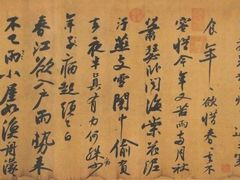 食年年欲惜春春去不
容惜今年又苦雨兩月秋
蕭瑟臥聞海棠花泥
汙燕支雪闇中偷負
去夜半真有力何殊少
年子病起頭已白
春江欲入戶雨勢來
不已雨小屋如漁舟濛